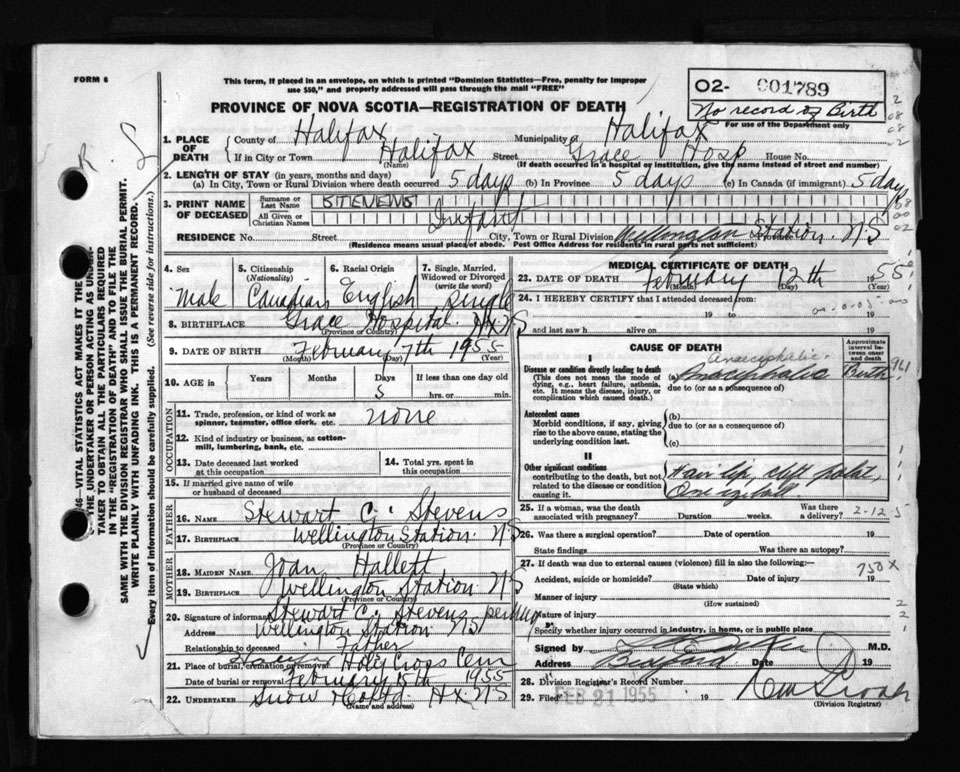 FORM 6
This form, if placed in an envelope, on which is printed "Dominion Statistics—Free, penalty for improper
use $50," and properly addressed will pass through the mail "FREE"
O2- 001789
No record of Birth
For use of the Department only
PROVINCE OF NOVA SCOTIA—REGISTRATION OF DEATH
1. PLACE OF DEATH
County of Halifax Municipality of Halifax
If in City or Town Halifax Street Grace Hosp House No.
(Name) (If death occurred in a hospital or institution, give the name instead of street and number)
2. LENGTH OF STAY (in years, months and days)
(a) In City, Town or Rural Division where death occurred 5 days (b) In Province 5 days (c) In Canada (if immigrant) 5 days
3. PRINT NAME OF DECEASED
Surname or Last Name STEVENS
All Given or Christian Names Infant
RESIDENCE No. Street City, Town or Rural Division Wellington Station Province N.S
(Residence means usual place of abode. Post Office Address for residents in rural parts not sufficient)
4. Sex Male
5. Citizenship (Nationality) Canadian
6. Racial Origin English
7. Single, Married, Widowed or Divorced (write the word) single
8. BIRTHPLACE Grace Hospital Hx NS
(Province or Country)
9. DATE OF BIRTH February 7th 1955
(Month) (Day) (Year)
10. AGE in Years Months Days If less than one day old
5 hrs. or min.
OCCUPATION
11. Trade, profession, or kind of work as
spinner, teamster, office clerk. etc. none
12. Kind of industry or business, as cotton-
mill, lumbering, bank, etc.
13. Date deceased last worked
at this occupation
14. Total yrs. spent in
this occupation
15. If married give name of wife
or husband of deceased
FATHER
16. NAME Stewart C. Stevens
17. BIRTHPLACE Wellington Station N.S
(Province or Country)
MOTHER
18. MAIDEN NAME Joan Hallett
19. BIRTHPLACE Wellington Station N.S
(Province or Country)
20. Signature of informant Stewart C. Stevens per
Address Wellington Station NS
Relationship to deceased Father
21. Place of burial, cremation or removal Holy Cross Cem
Date of burial or removal February 15th 1955
22. UNDERTAKER Snow & Co Ltd Hx NS
(Name and address)
MEDICAL CERTIFICATE OF DEATH
23. DATE OF DEATH February 12th 1955
(Month) (Day)
24. I HEREBY CERTIFY that I attended deceased from:
19 to 19
and last saw h alive on 19
CAUSE OF DEATH
Approximate interval between onset and death
I
Disease or condition directly leading to death
(This does not mean the mode of
dying, e.g., heart failure, asthenia,
etc. It means the disease, injury, or
complication which caused death.)
(a) Birth
due to (or as a consequence of)
Antecedent causes
Morbid conditions, if any, giving
rise to the above cause, stating the
underlying condition last.
(b)
due to (or as a consequence of)
(c)
II
Other significant conditions
contributing to the death, but not
related to the disease or condition
causing it.
Hair lip, cleft palat,
One eyeball.
25. If a woman, was the death
associated with pregnancy? Duration weeks. Was there a delivery?
2-12
26. Was there a surgical operation? Date of operation 19
State findings Was there an autopsy?
27. If death was due to external causes (violence) fill in also the following:—
750 X
Accident, suicide or homicide? Date of injury 19
(State which)
Manner of injury
(How sustained)
Nature of injury
Specify whether injury occurred in industry, in home, or in public place
Signed by M.D.
Address Bedford Date 19
28. Division Registrar's Record Number
29. Filed FEB 21 1955 19
(Division Registrar)
THE VITAL STATISTICS ACT MAKES IT THE
THE UNDERTAKER OR PERSON ACTING AS UNDER-
TAKER TO OBTAIN ALL THE PARTICULARS REQUIRED
IN THE "REGISTRATION OF DEATH" AND TO FILE THE
SAME WITH THE DIVISION REGISTRAR WHO SHALL ISSUE THE BURIAL PERMIT.
WRITE PLAINLY WITH UNFADING INK. THIS IS A PERMANENT RECORD.
Every item of information should be carefully supplied. (See reverse side for instructions.)